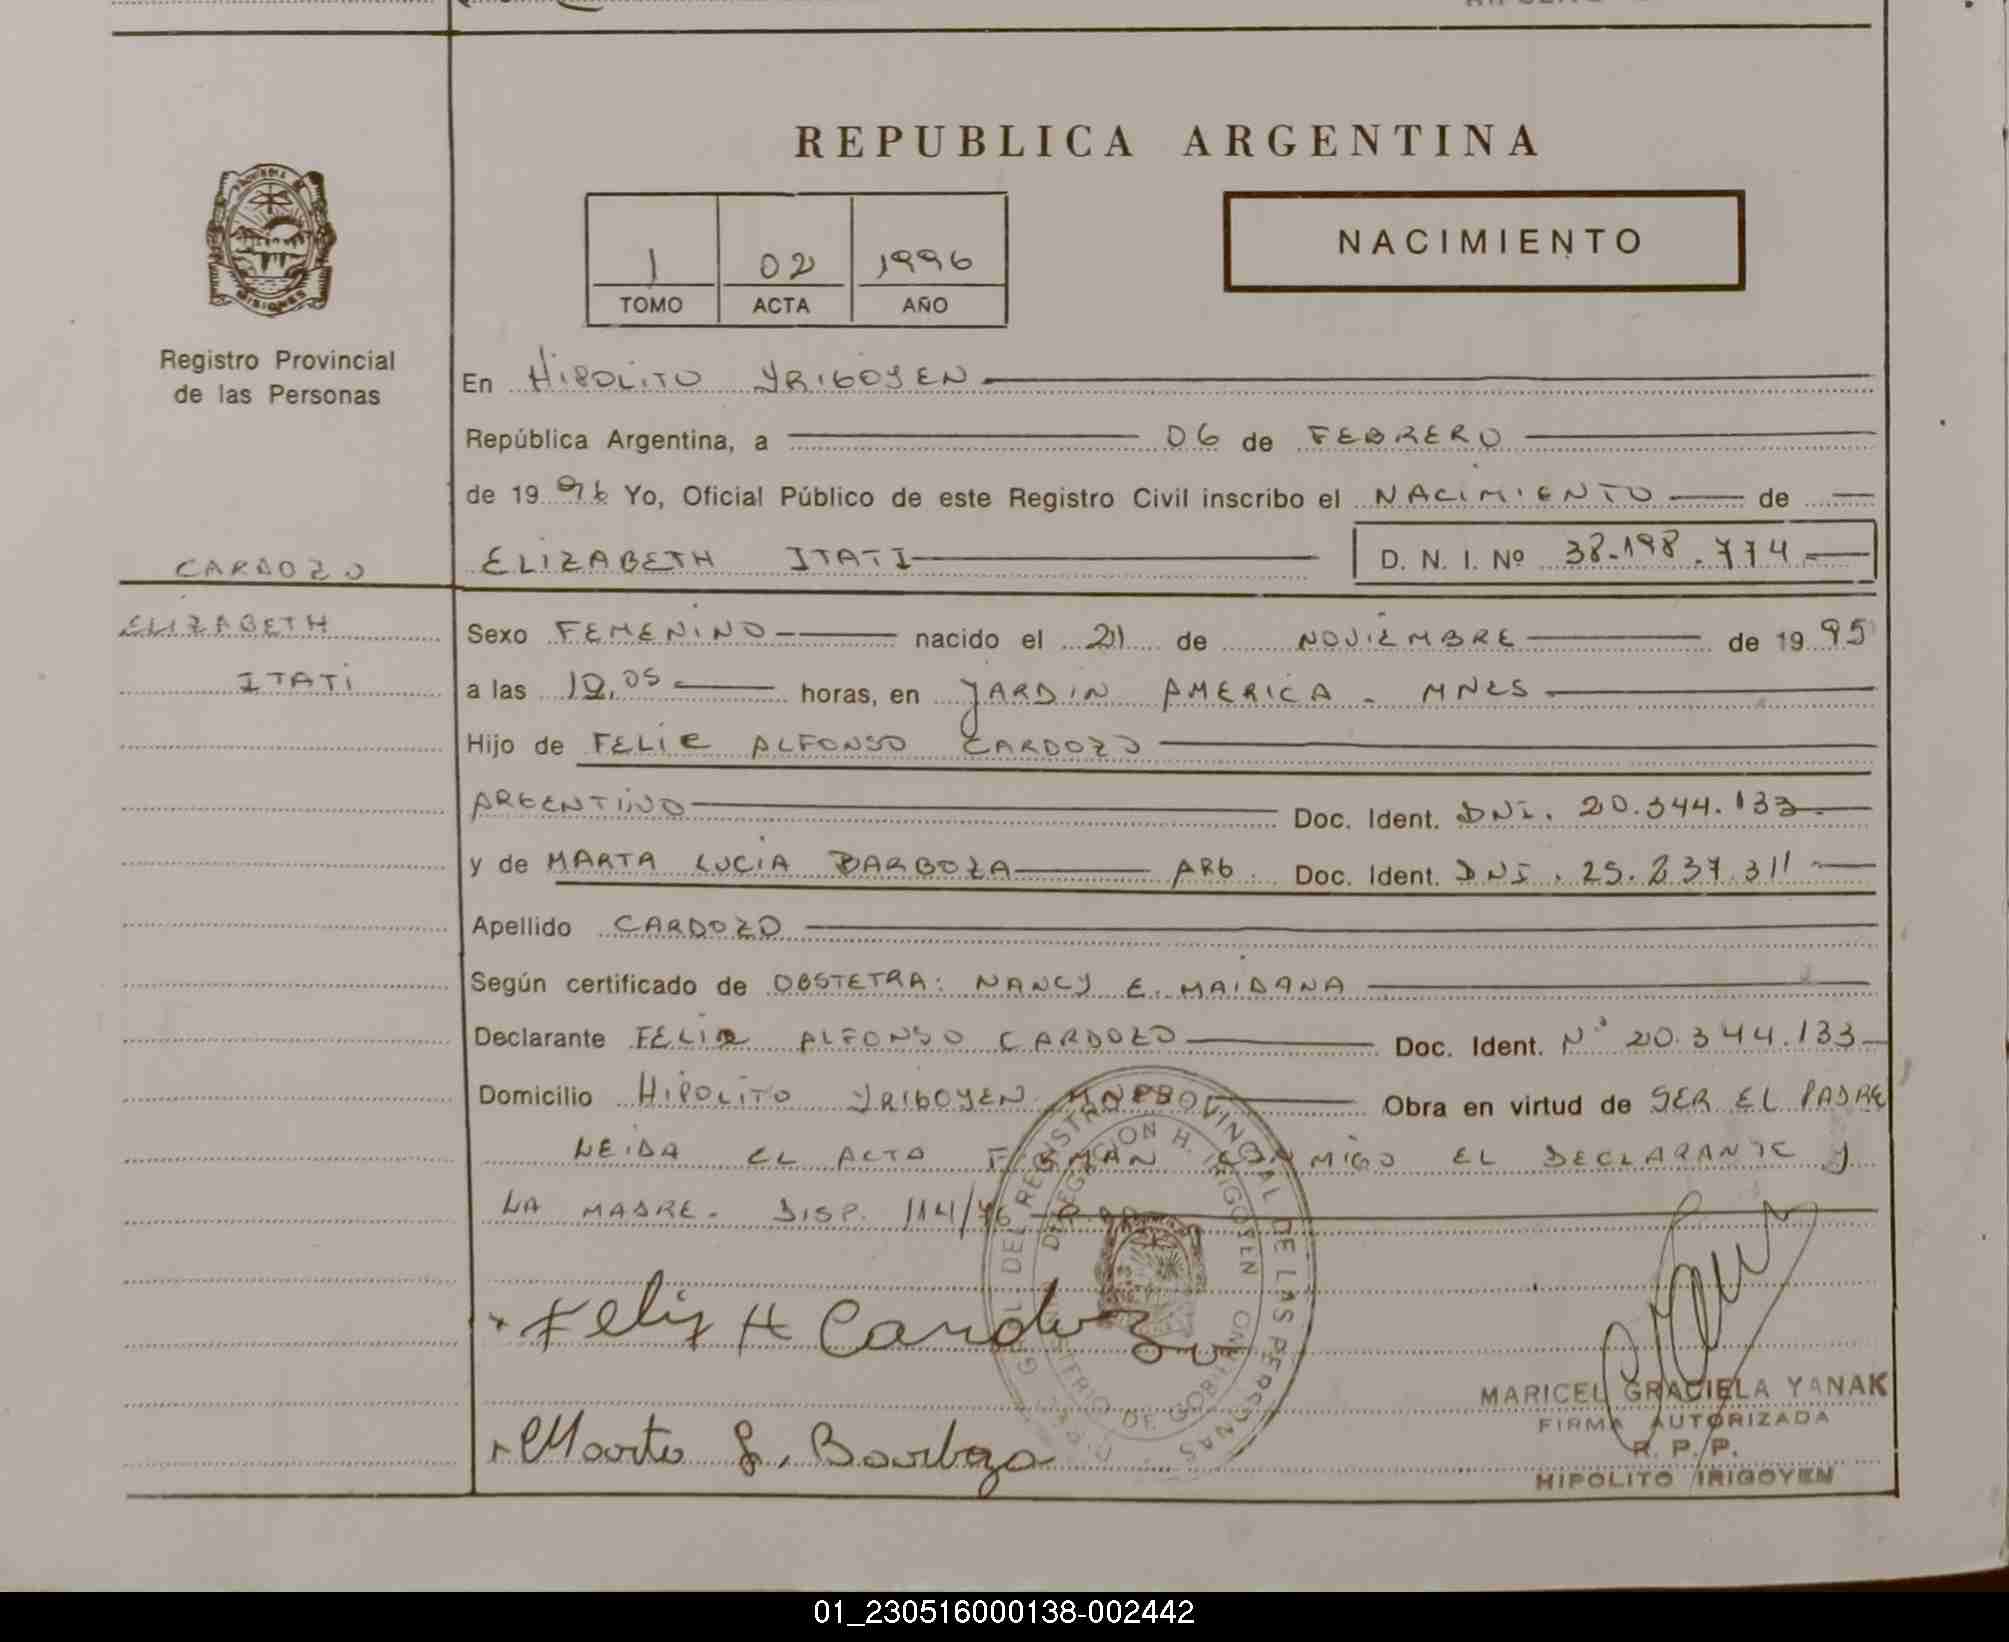 REPUBLICA ARGENTINA
PROVINCIA DE
MISIONES
Registro Provincial
de las Personas
1 02 1996
TOMO ACTA AÑO
NACIMIENTO
En HIPOLITO YRIGOYEN
República Argentina, a 06 de FEBRERO
de 19 96 Yo, Oficial Público de este Registro Civil inscribo el NACIMIENTO de
CARDOZO
ELIZABETH ITATI D. N. I. Nº 38.198.774
ELIZABETH
Sexo FEMENINO nacido el 21 de NOVIEMBRE de 19 95
ITATI
a las horas, en JARDIN AMERICA - MNES
Hijo de FELIX ALFONSO CARDOZO
ARGENTINO Doc. Ident. DNI. 20.344.133
y de MARTA LUCIA BARBOZA ARG. Doc. Ident. DNI. 25.237.311
Apellido CARDOZO
Según certificado de OBSTETRA: NANCY E. MAIDANA
Declarante FELIX ALFONSO CARDOZO Doc. Ident. Nº 20.344.133
Domicilio HIPOLITO YRIGOYEN MNES Obra en virtud de SER EL PADRE
LEIDA EL ACTA FIRMAN CONMIGO EL DECLARANTE Y
LA MADRE. DISP. 114/76
DIR. GRAL. DEL REGISTRO PROVINCIAL DE LAS PERSONAS
DELEGACION H. IRIGOYEN
MINISTERIO DE GOBIERNO
Felix A Cardozo
Marta L. Barboza
MARICEL GRACIELA YANAK
FIRMA AUTORIZADA
R. P. P.
HIPOLITO IRIGOYEN
01_230516000138-002442